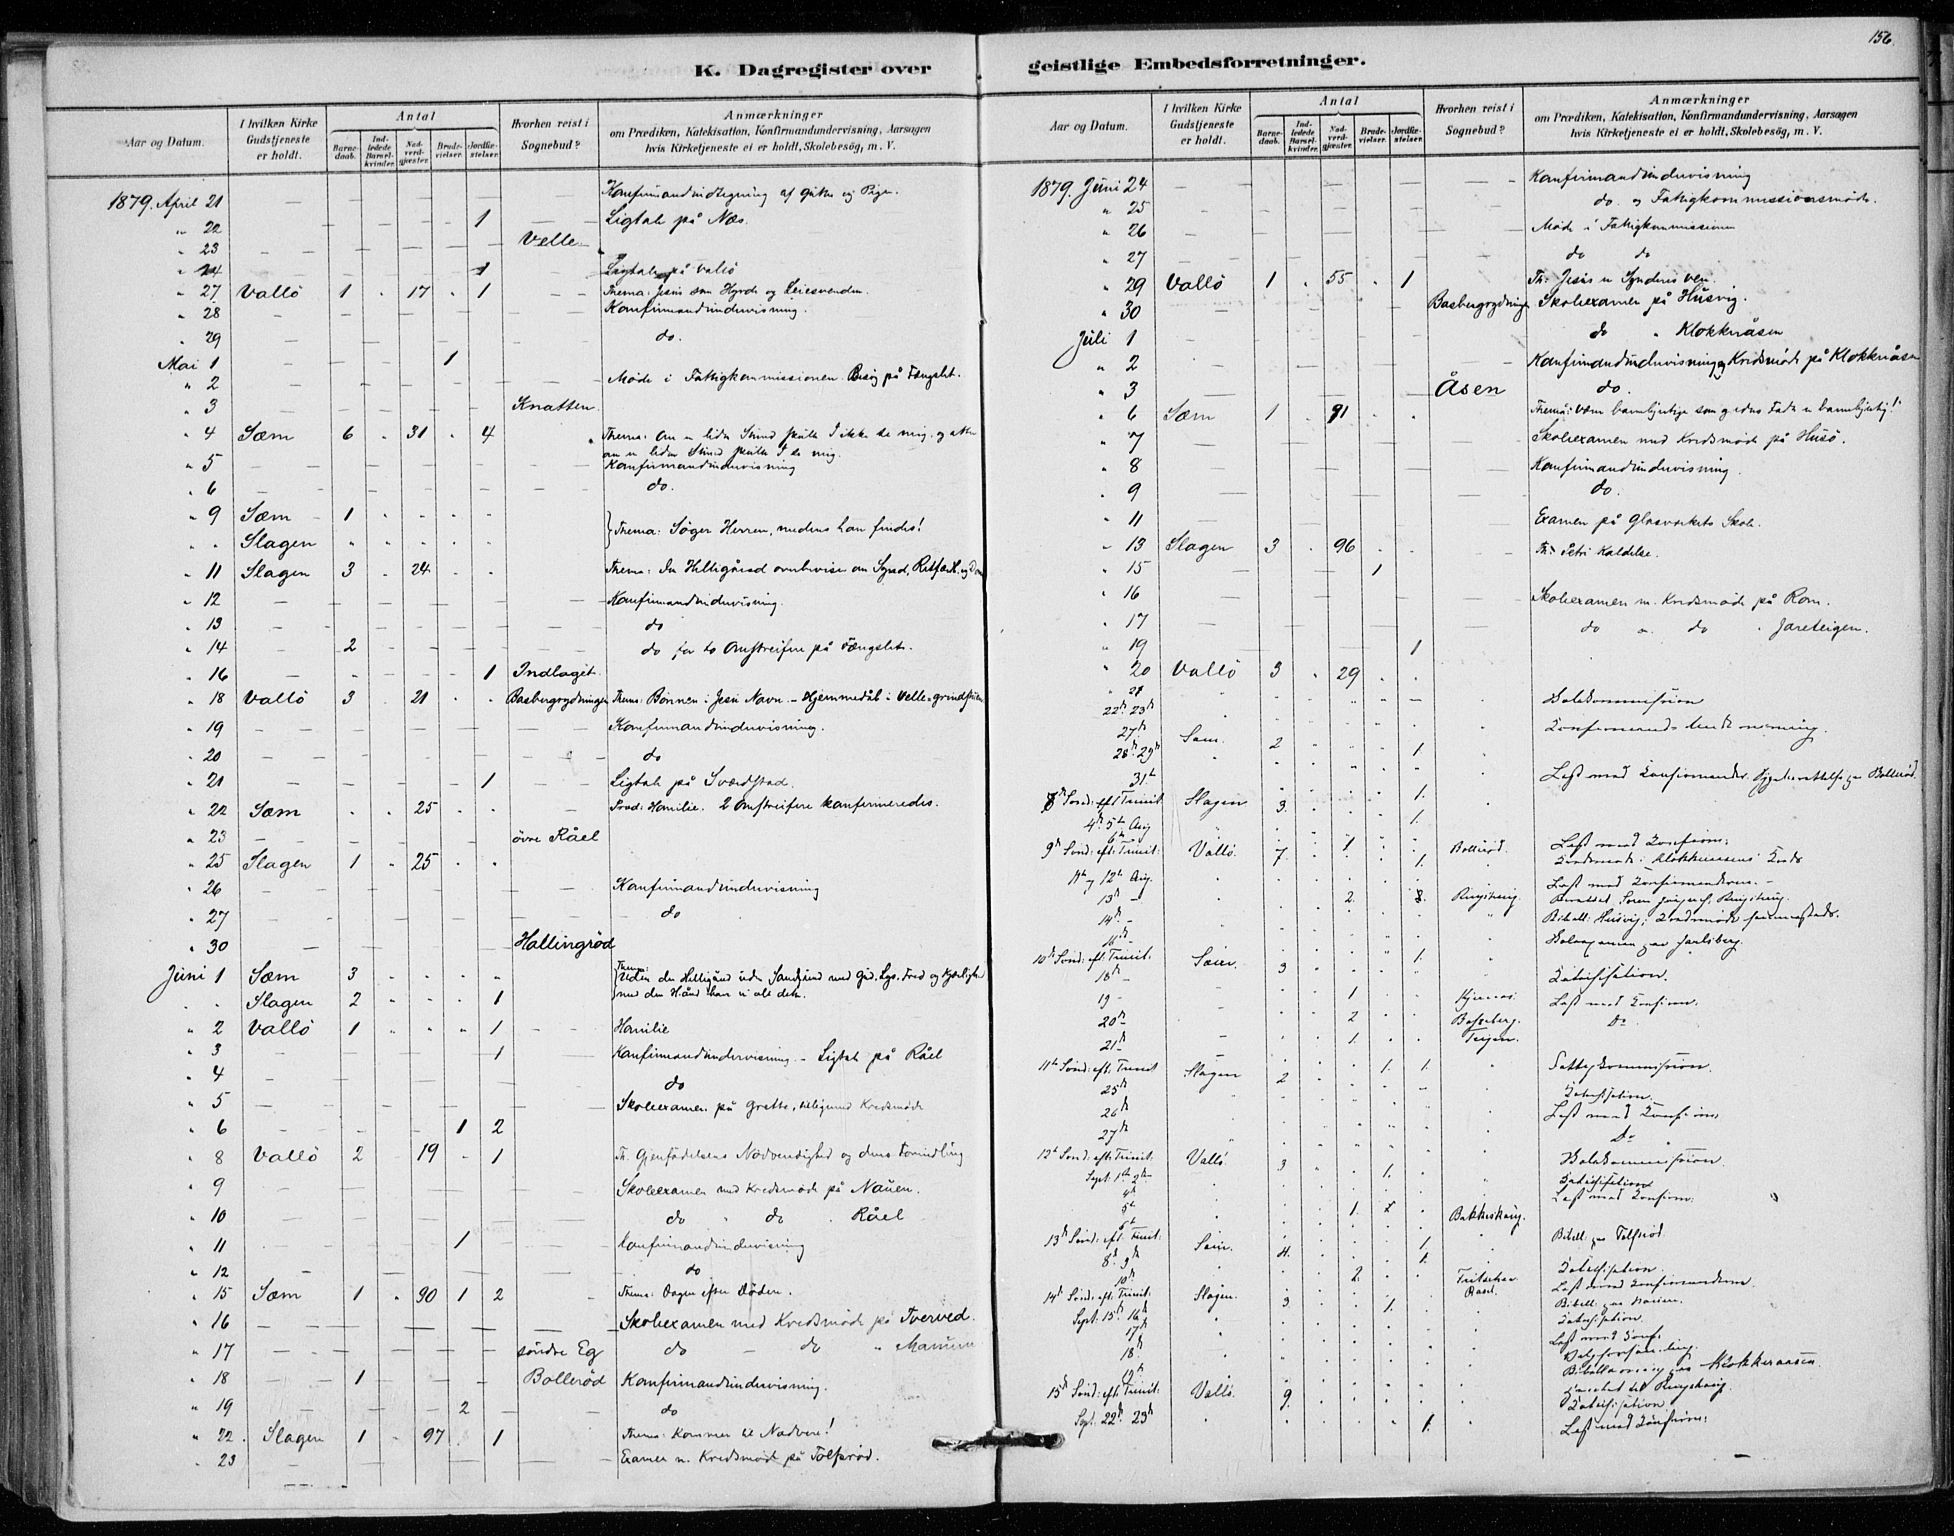 156
K. Dagregister over geistlige Embedsforretninger.
Aar og Datum.
I hvilken Kirke Gudstjeneste er holdt.
Antal
Barne-daab.
Ind-ledede Barsel-kvinder.
Nad-verd-gjæster.
Brude-vielser.
Jordfæ-stelser.
Hvorhen reist i Sognebud?
Anmærkninger
om Prædiken, Katekisation, Konfirmandundervisning, Aarsagen
hvis Kirketjeneste ei er holdt, Skolebesög, m. V.
1879. April 21 — — — Konfirmandindtegning af Gutter og Piger.
" 22 — 1 — Ligtale på Næs.
" 23 — Velle —
" 24 — 1 Ligtale på Vallö
" 27 Vallö 1 . 17 . 1 — Thema: Jesus som Hyrde og Leiesvenden.
" 28 — Konfirmandundervisning.
" 29 — do.
Mai 1 — 1
" 2 — Möde i Fattigkommissionen. Besög på Fængslet.
" 3 — Knatten.
" 4 Sæm 6 . 31 . 4 Thema: Om en liden Stund skulle I ikke se mig, og atter
om en liden Stund skulle I se mig.
" 5 — Konfirmandundervisning
" 6 — do.
" 9 Sæm 1 . . . . Thema: Söger Herren, medens han findes!
" . Slagen " " . . .
" 11 Slagen 3 . 24 . . Thema: Den Helligånd overbeviser om Synd, Retfærd. og Dom
" 12 — Konfirmandundervisning.
" 13 — do
" 14 — 2 — do for to Omstreifere på Fængslet.
" 16 — 1 Indlaget.
" 18 Vallö 3 . 21 . . Basbergrydningen Thema: Bönnen i Jesu Navn. – Hjemmedåb i Velle-grindstuen
" 19 — Konfirmandundervisning.
" 20 — do
" 21 — 1 Ligtale på Sværdstad.
" 22 Sæm . . 25 . . Homilie. 2 Omstreifere konfirmeredes.
" 23 — övre Råel
" 25 Slagen 1 . 25 . .
" 26 — Konfirmandundervisning
" 27 — do
" 30 — Hallingröd
Juni 1 Sæm 3 . . . " Thema: Uden den Helligånd uden Samfund med Gud. Lys, Fred og Kjærlighed
. . Slagen 2 . . . 1 med den Hånd har vi alt dette.
" 2 Vallö 1 " . " 1 Homilie
" 3 — 1 Konfirmandundervisning. – Ligtale på Råel
" 4 — do
" 5 — Skoleexamen på Grette, tilligemed Kredsmöde
" 6 — 1 2
" 8 Vallö 2 . 19 . 1 Th. Gjenfödelsens Nödvendighed og dens Forvindling
" 9 — Skoleexamen med Kredsmöde på Nauen.
" 10 — do " do . Råel
" 11 — 1 Konfirmandundervisning
" 12 — do
" 15 Sæm 1 . 90 1 2 Thema: Dagen efter Döden.
" 16 — Skoleexamen med Kredsmöde på Tverved.
" 17 — söndre Eg do — do "
" 18 — 1 — Bolleröd Konfirmandundervisning.
" 19 — 2 — do
" 22. Slagen 1 . 97 . 1 Thema: Kommer til Nadvere!
. 23 — Examen m. Kredsmöde på Tolfsröd.
Aar og Datum.
I hvilken Kirke Gudstjeneste er holdt.
Antal
Barne-daab.
Ind-ledede Barsel-kvinder.
Nad-verd-gjæster.
Brude-vielser.
Jordfæ-stelser.
Hvorhen reist i Sognebud?
Anmærkninger
om Prædiken, Katekisation, Konfirmandundervisning, Aarsagen
hvis Kirketjeneste ei er holdt, Skolebesög, m. V.
1879. Juni 24 — Konfirmandundervisning
" 25 — do. og Fattigkommissionsmöde.
" 26 — Möde i Fattigkommissionen
" 27 — do do
" 29 Vallö 1 . 55 . 1 Th: Jesus en Synderes Ven.
" 30 — Basbergrydningen Skoleexamen på Husvig.
Juli 1 — do " Klokkeråsen
" 2 — Konfirmandundervisning og Kredsmöde på Klokkeråsen
" 3 — Åsen do.
" 6 Sæm 1 . 91 . . Thema: Vær barmhjertige som eders Fader er barmhjertig!
" 7 — Skoleexamen med Kredsmöde på Husö.
" 8 — Konfirmandundervisning.
. 9 — do.
" 11 — Examen på Glasværkets Skole.
" 13 Slagen 3 . 96 . . Th: Petri Kaldelse.
" 15 — 1
" 16 — Skoleexamen m. Kredsmöde på Rom.
" 17 — do " do . Jareteigen.
" 19 — 1
" 20 Vallö 3 . 29 . .
" 21 Skolekommission
22de 23de Konfirmand-Underviisning.
27de Sem. 2 1.
28de 29de
31te Læst med Konfirmander. Bolleröd.
8de Sönd: eft. Trinit. Slagen 3. 1.
4de 5te Aug 1.
6te Læst med Konfirm:
9de Sönd: eft: Trinit: Vallö. 7. 1 1. Bolleröd. Kredsmöde i Klokkeraasens Kreds
11te og 12te Aug. Læst med Konfirmanderne. –
13de – 2. 8. Ringshaug.
14de – Bibell: Husvig; Kredsmöde sammesteds.
16de – Skolexamen paa Jarlsberg.
10de Sönd: eft. Trinit. Sem. 3 1.
18de – Katechisation.
19 – 1 Læst med Konfirm.
20de – 2 Basseberg. Do
21de – 1. Teigen.
11te Sönd: eft. Trinit Slagen 2 1. 1. Fattigkommission.
25de Katechisation.
26de Læst med Konfirm.
27de Do
12te Sönd: eft. Trinit. Vallö. 3 1. Skolekommission.
Sept: 1ste 2den Katechisation
4de Læst med Konfirm.
5te 1. Bakkeskaug.
6te Bibell: paa Tolfsröd.
13de Sönd: eft. Trinit: Sem. 4. 1.
8de 9de 1. Katechisation.
10de 2. Raael. Læst med Konfirmanderne.
14de Sönd: eft. Trinit. Slagen. 3. 1. Bibell: paa Nauen.
Sept: 15de 16de Katechisation.
17de Læst med Konf:
18de
19de Bibellæsning paa Klokkeraasen.
15de Sönd: eft. Trinit: Vallö. 9. Ringshaug.
Sept: 22de 23de 1. Katechisation
Læst med Konfirm: